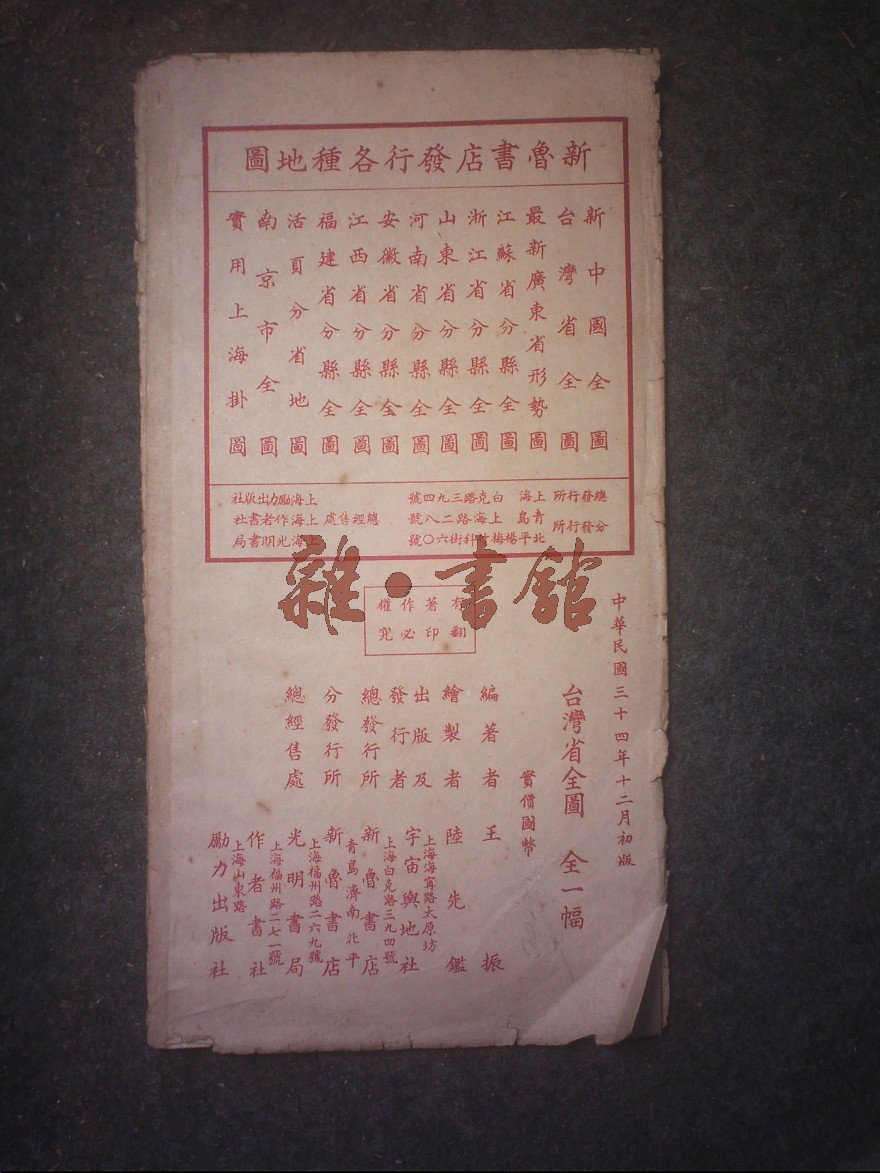 新魯書店發行各種地圖
新中國全圖
台灣省全圖
最新廣東省形勢圖
江蘇省分縣全圖
浙江省分縣全圖
山東省分縣全圖
河南省分縣全圖
安徽省分縣全圖
江西省分縣全圖
福建省分縣全圖
活頁分省地圖
南京市全圖
實用上海掛圖
總發行所 上海 白克路三九四號
分發行所 青島 上海路二八號
北平 楊梅竹斜街六〇號
總經售處 上海勵力出版社
上海作者書社
上海光明書局
雜·書館
有著作權
翻印必究
中華民國三十四年十二月初版
台灣省全圖 全一幅
實價國幣
編著者 王振
繪製者 陸先鑑
出版及發行者 宇宙輿地社
上海海寧路太原坊
總發行所 新魯書店
上海白克路三九四號
分發行所 新魯書店
青島濟南北平
總經售處 光明書局
上海福州路二六九號
作者書社
上海福州路二七一號
勵力出版社
上海山東路